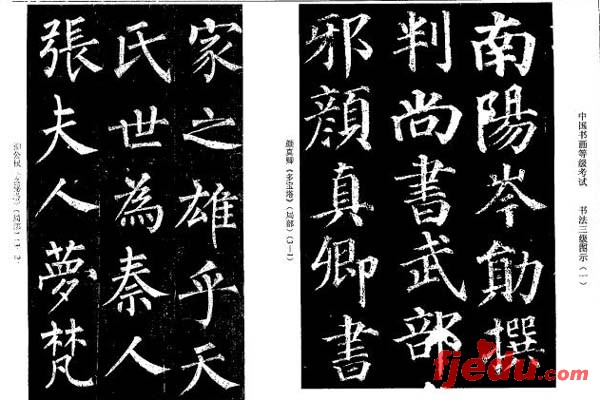 中国书画等级考试 书法三级图示(一)
南陽岑勛撰
判尚書武部
邪顏真卿書
颜真卿《多宝塔》(局部)(3—1)
家之雄乎天
氏世為秦人
張夫人夢梵
公权 (局部)
fjedu.com